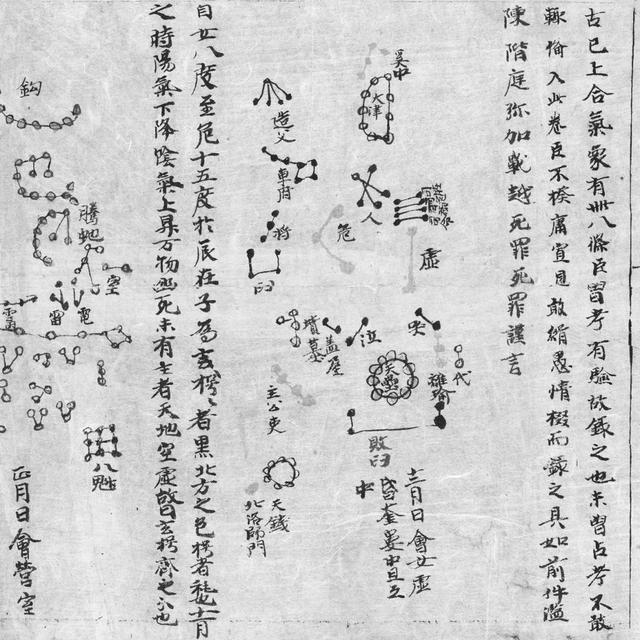 古已上合氣象有卌八條臣曾考有驗故錄之也未曾占考不敢
輒備入此卷臣不揆庸寡見敢緝愚情掇而錄之具如前件濫
陳階庭弥加戰越死罪死罪謹言
奚仲
天津
人
虛
危
哭
泣
代
離瑜
天壘
敗臼
十二月日會女虛
昏奎婁中旦互
中
造父
車府
杵
臼
墳墓
蓋屋
主公吏
天錢
北洛師門
自女八度至危十五度於辰在子為玄枵者黑北方之色枵者秏十一月
之時陽氣下降陰氣上昇万物幽死未有生者天地空虛故曰玄枵齊之分也
鈎
騰蛇
室
電
雷
八魁
正月日會營室